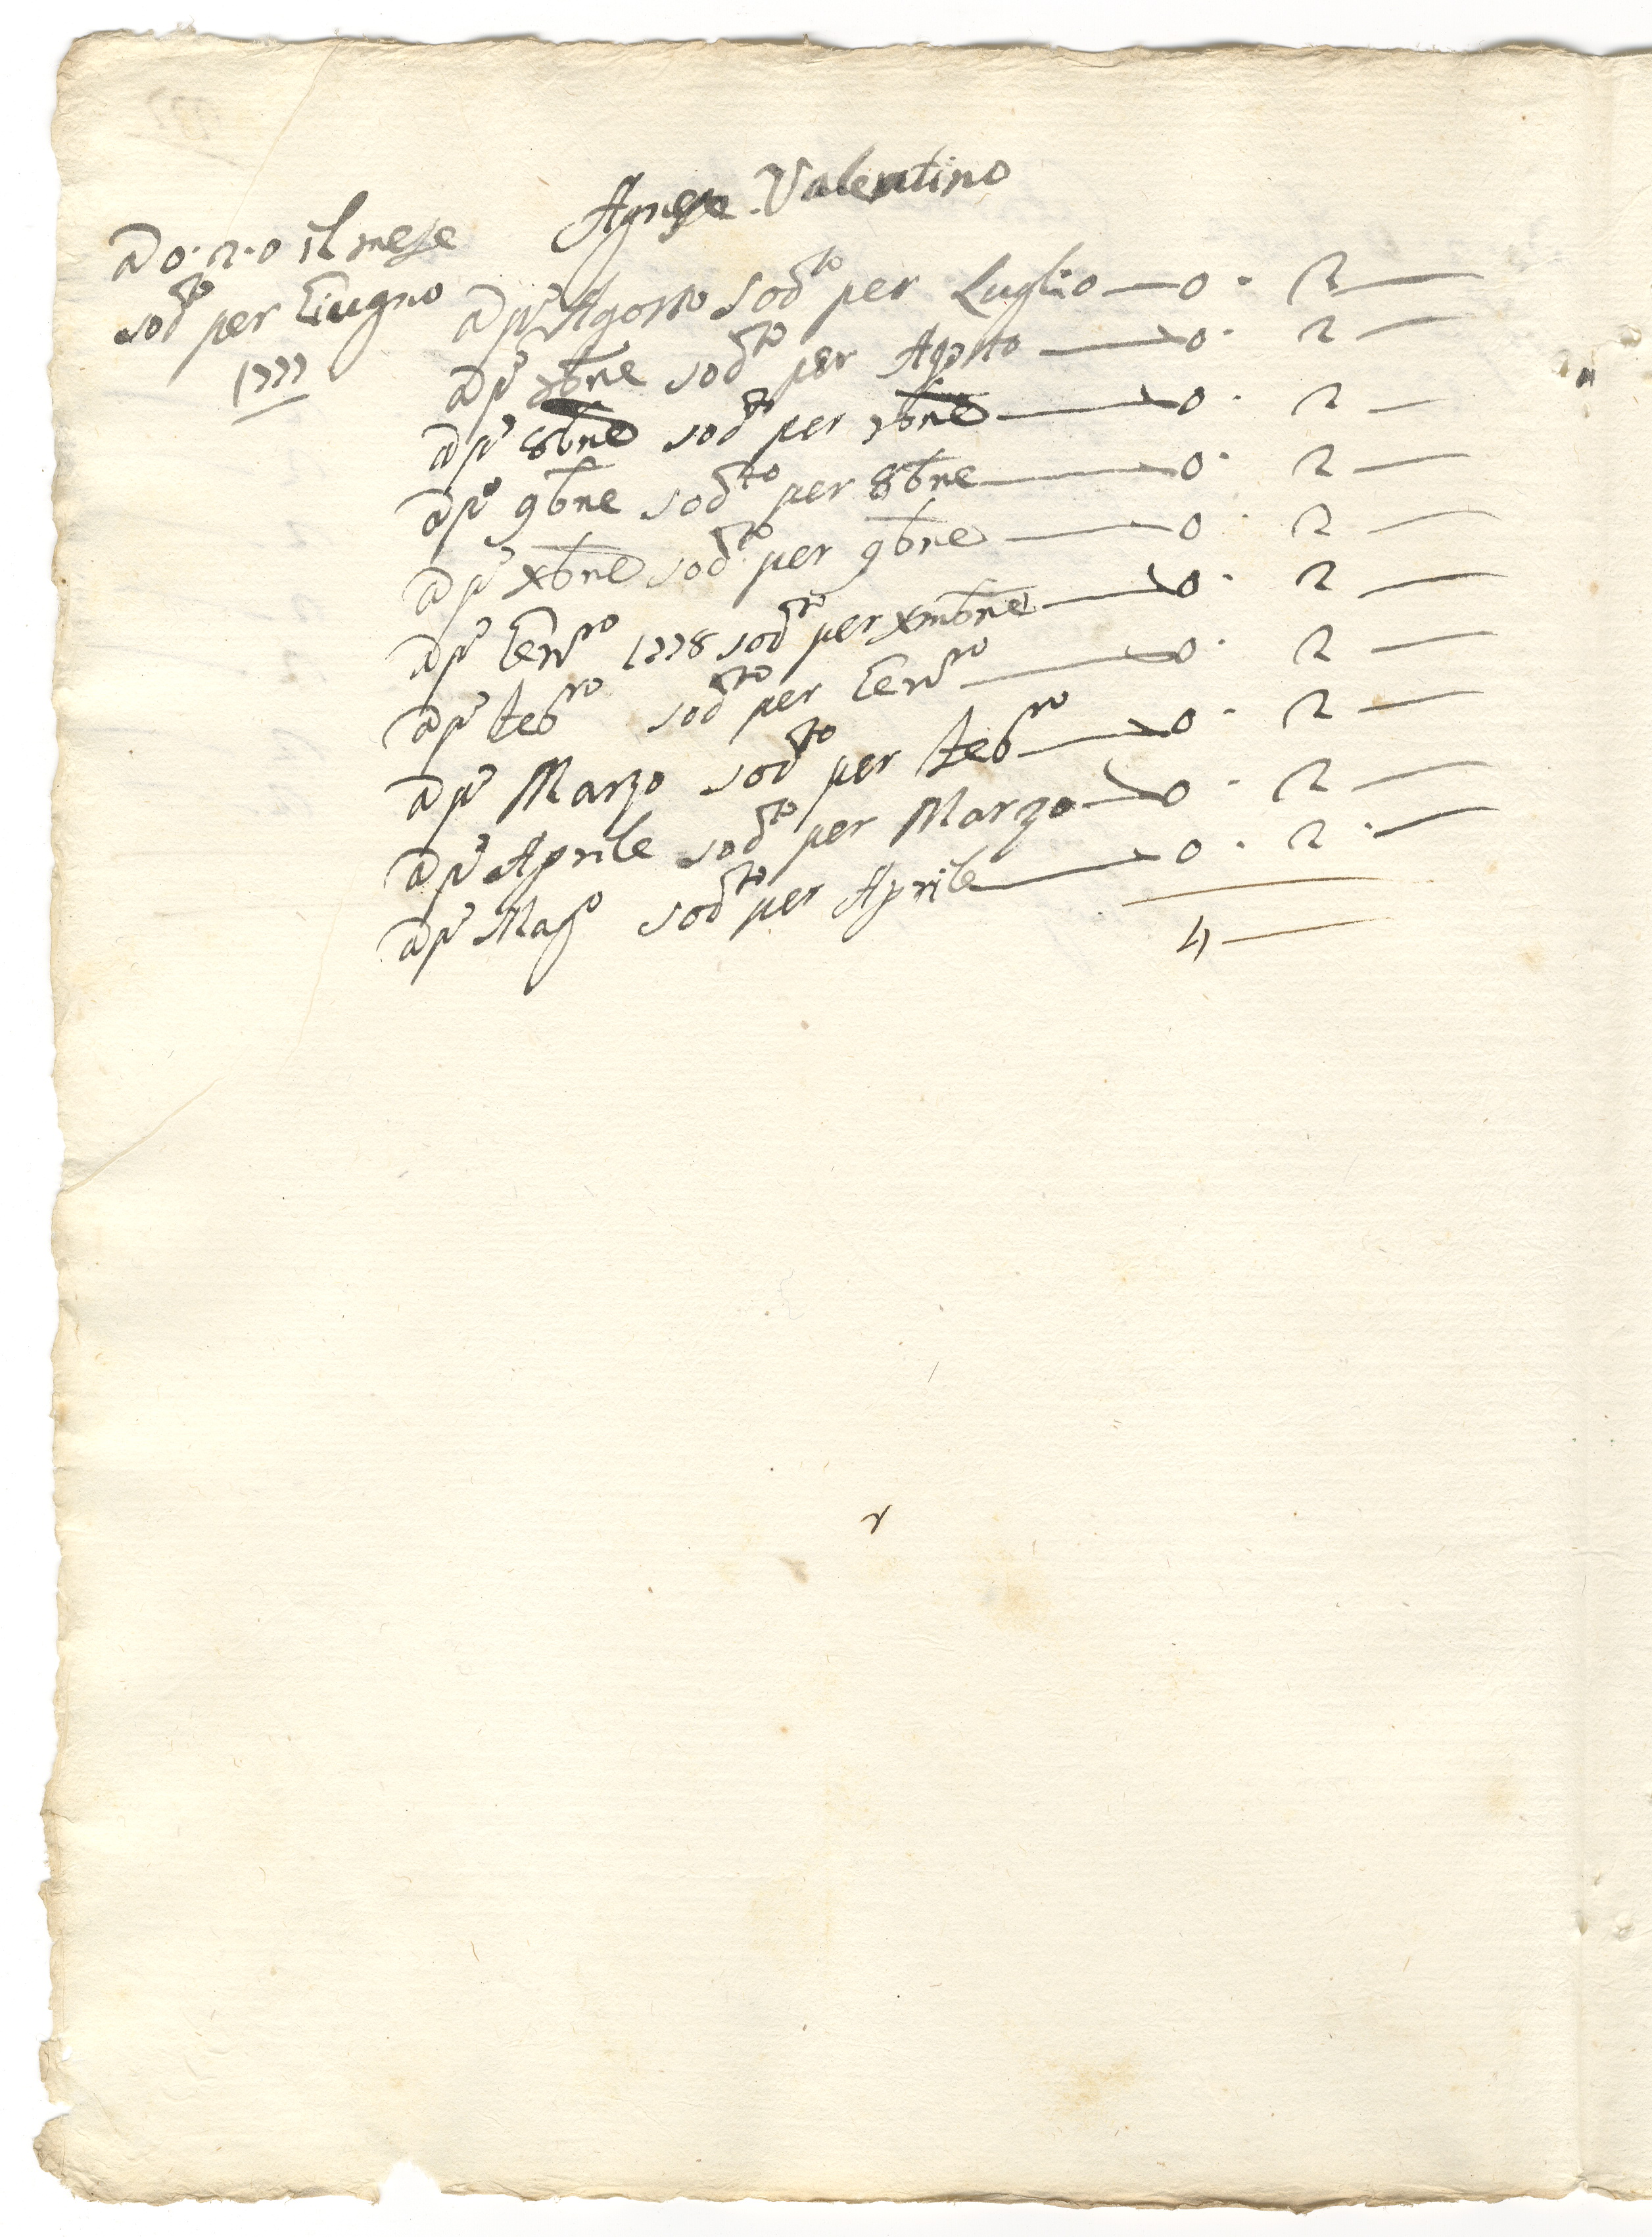 Agnese Valentino
a 0.2.0 il mese
sodto per Giugno
1777
a pº Agosto sodto per Luglio — 0 . 2 —
a pº 7bre sodto per Agosto — 0 . 2 —
a pº 8bre sodto per 7bre — 0 . 2 —
a pº 9bre sodto per 8bre — 0 . 2 —
a pº xbre sodto per 9bre — 0 . 2 —
a pº Gennro 1778 sodto per xmbre — 0 . 2 —
a pº febro sodto per Gennro — 0 . 2 —
a pº Marzo sodto per febro — 0 . 2 —
a pº Aprile sodto per Marzo — 0 . 2 —
a pº Magº sodto per Aprile — 0 . 2 . —
4 —